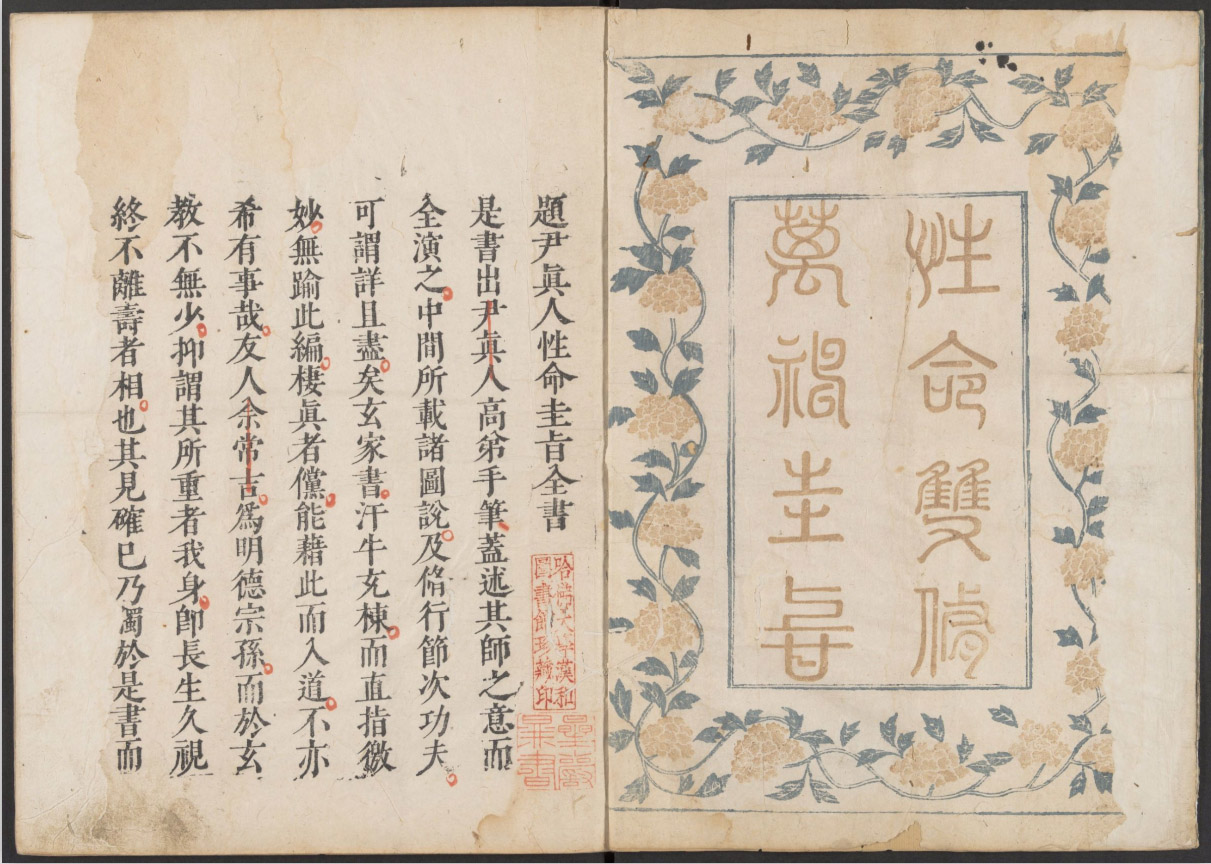 性命雙脩
萬神圭旨
題尹眞人性命圭㫖全書
是書出尹眞人高弟手筆蓋述其師之意而
全演之中間所載諸圖說及脩行節次功夫
可謂詳且盡矣玄家書汗牛充棟而直指微
妙無踰此編棲眞者儻能藉此而入道不亦
希有事哉友人余常吉爲明德宗孫而於玄
教不無少抑謂其所重者我身卽長生久視
終不離壽者相也其見確巳乃獨於是書而
哈佛大學漢和
圖書館珍藏印